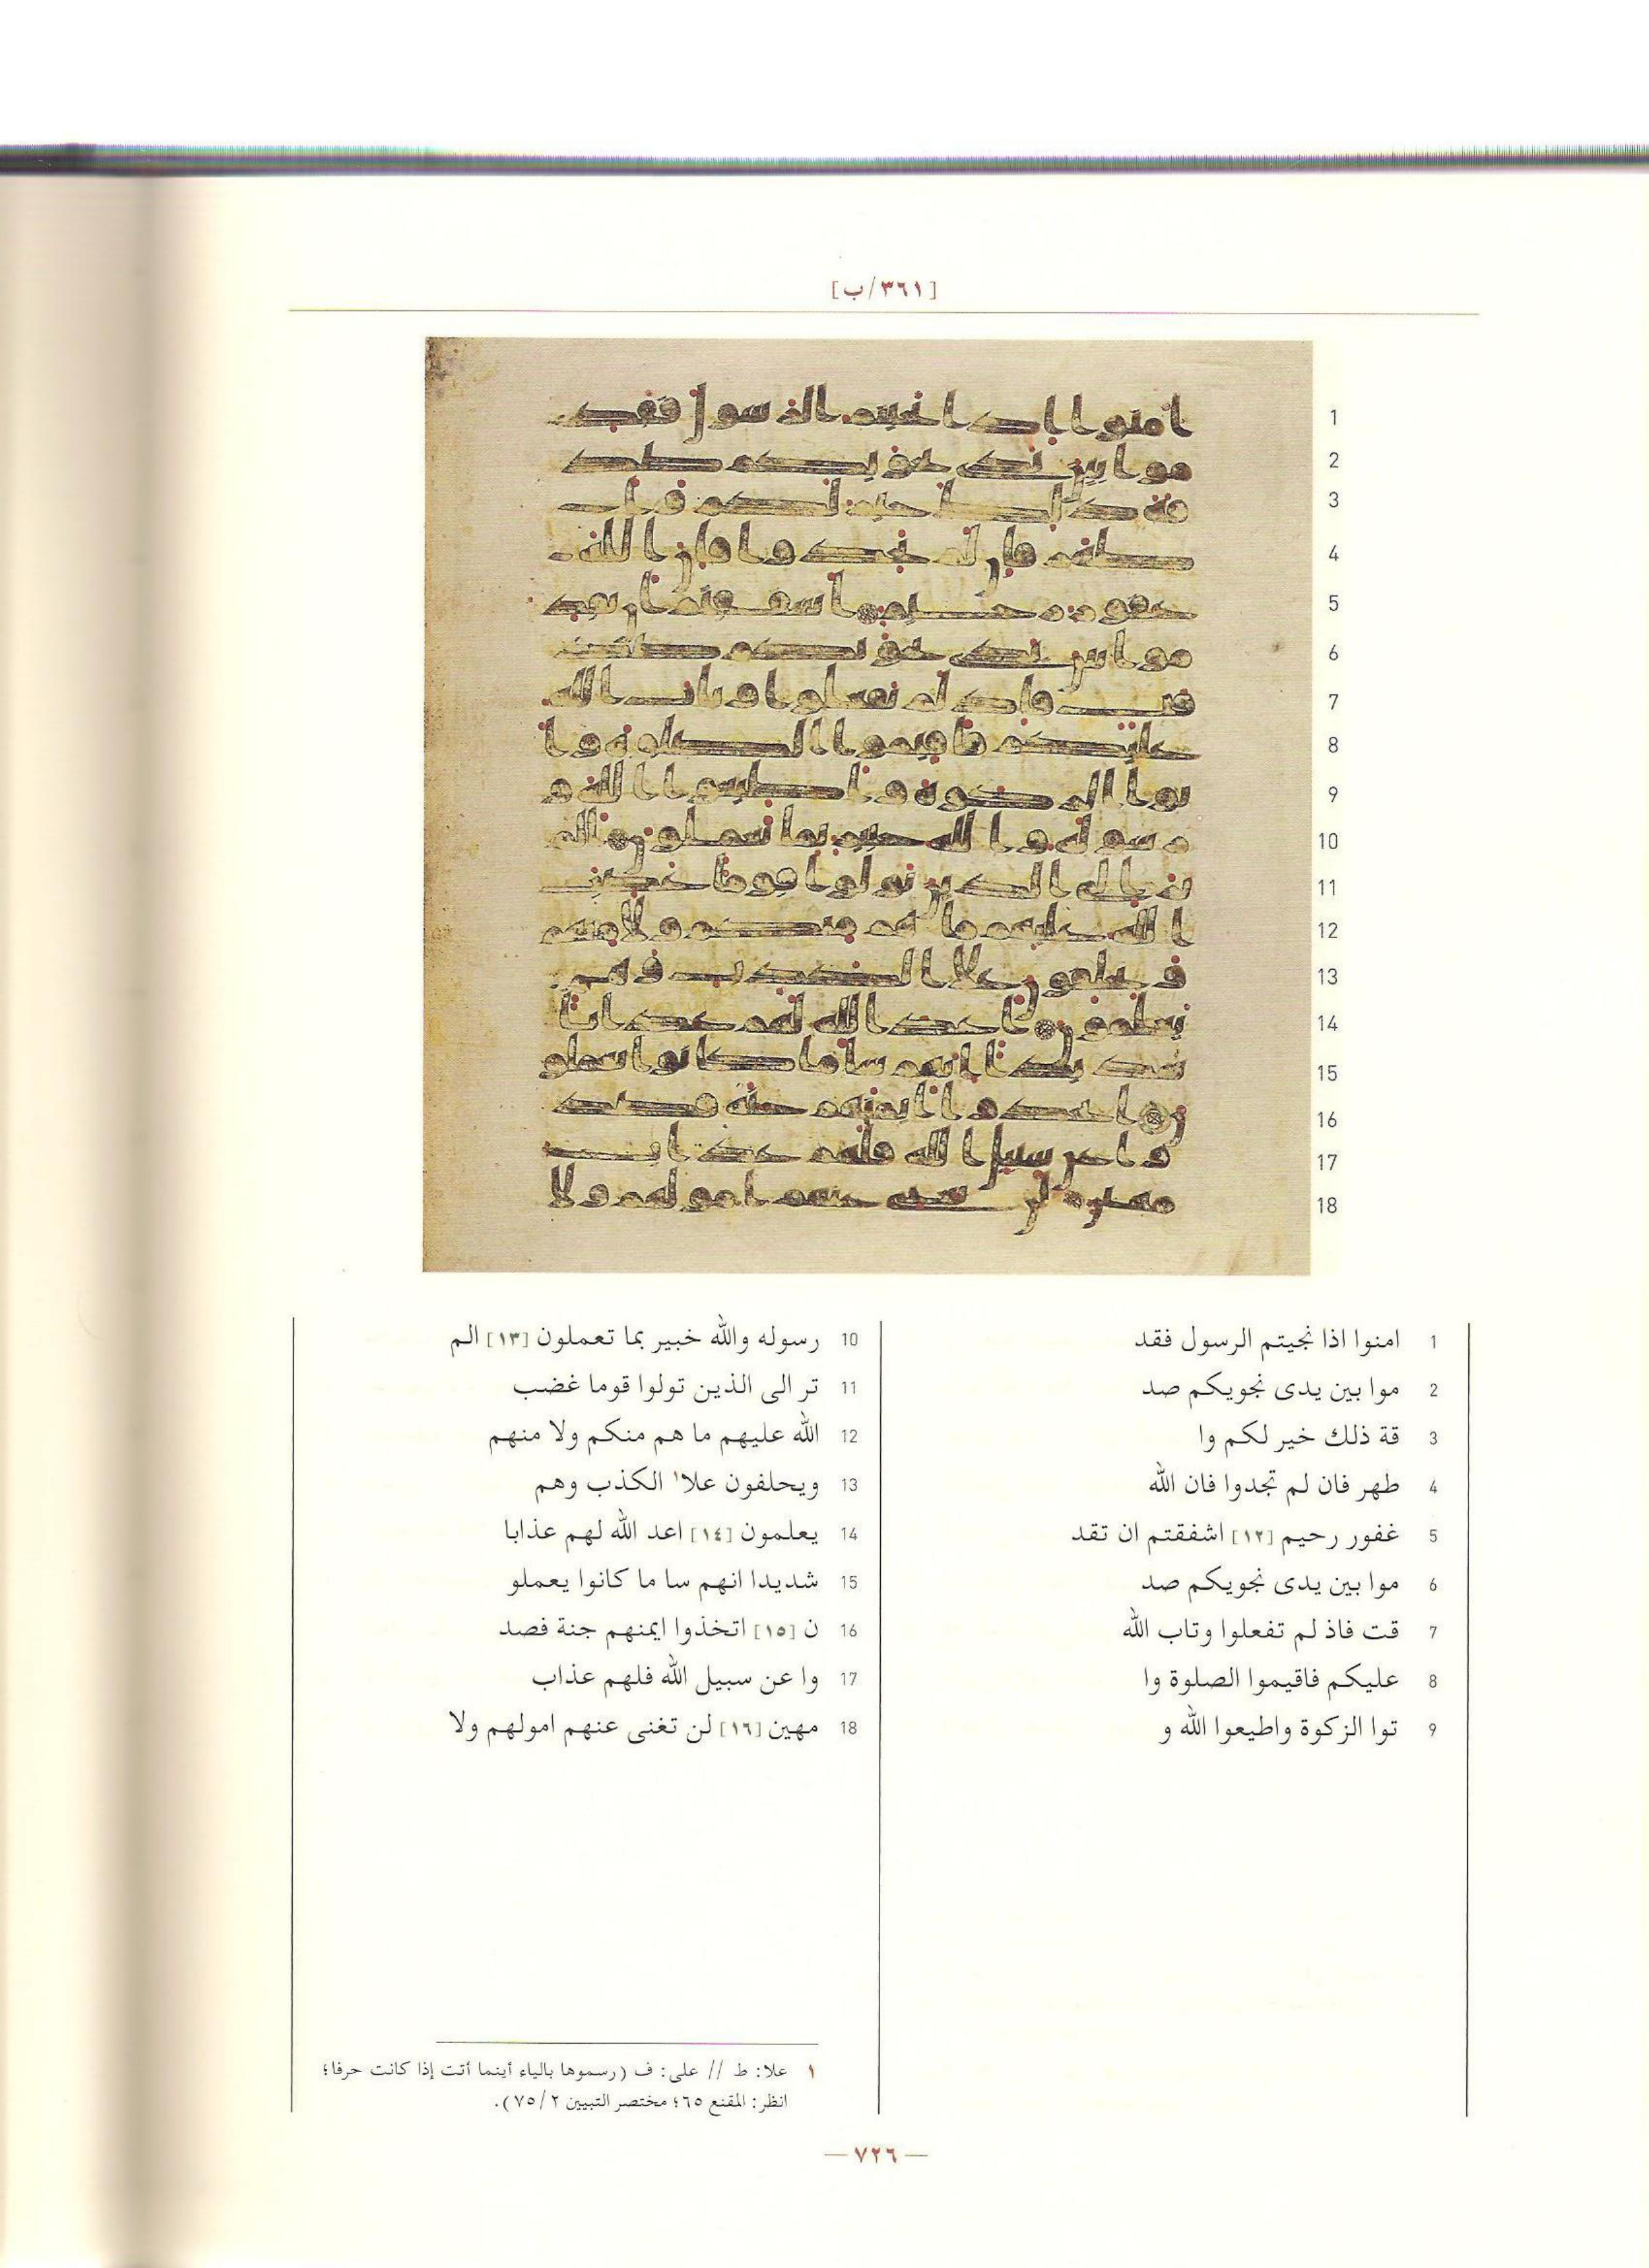 [٣٦١/ب]
1 امنوا اذا نجيتم الرسول فقد
2 موا بين يدى نجويكم صد
3 قة ذلك خير لكم وا
4 طهر فان لم تجدوا فان الله
5 غفور رحيم [١٢] اشفقتم ان تقد
6 موا بين يدى نجويكم صد
7 قت فاذ لم تفعلوا وتاب الله
8 عليكم فاقيموا الصلوة وا
9 توا الزكوة واطيعوا الله و
10 رسوله والله خبير بما تعملون [١٣] الم
11 تر الى الذين تولوا قوما غضب
12 الله عليهم ما هم منكم ولا منهم
13 ويحلفون علا١ الكذب وهم
14 يعلمون [١٤] اعد الله لهم عذابا
15 شديدا انهم سا ما كانوا يعملو
16 ن [١٥] اتخذوا ايمنهم جنة فصد
17 وا عن سبيل الله فلهم عذاب
18 مهين [١٦] لن تغنى عنهم امولهم ولا
١ علا: ط // على: ف (رسموها بالياء أينما أتت إذا كانت حرفا؛
انظر: المقنع ٦٥؛ مختصر التبيين ٧٥/٢).
— ٧٢٦ —